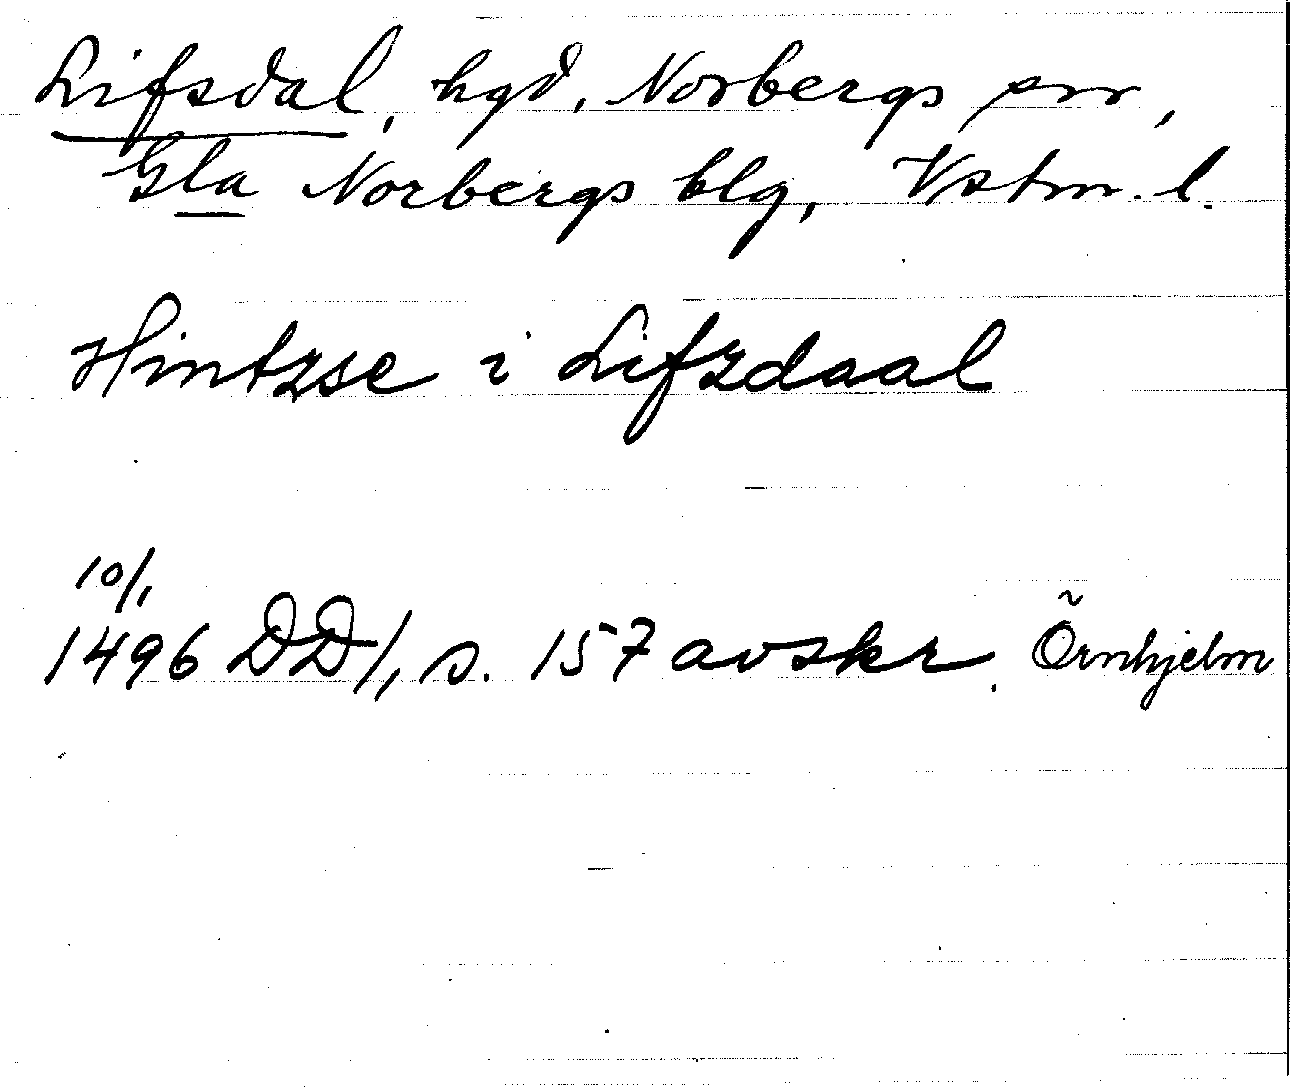 Lifsdal, hgd, Norbergs snr,
Gla Norbergs blg, Vstm. l.
Hintzse i Lifzdaal
10/1
1496 DD1, s. 157 avskr. Örnhjelm